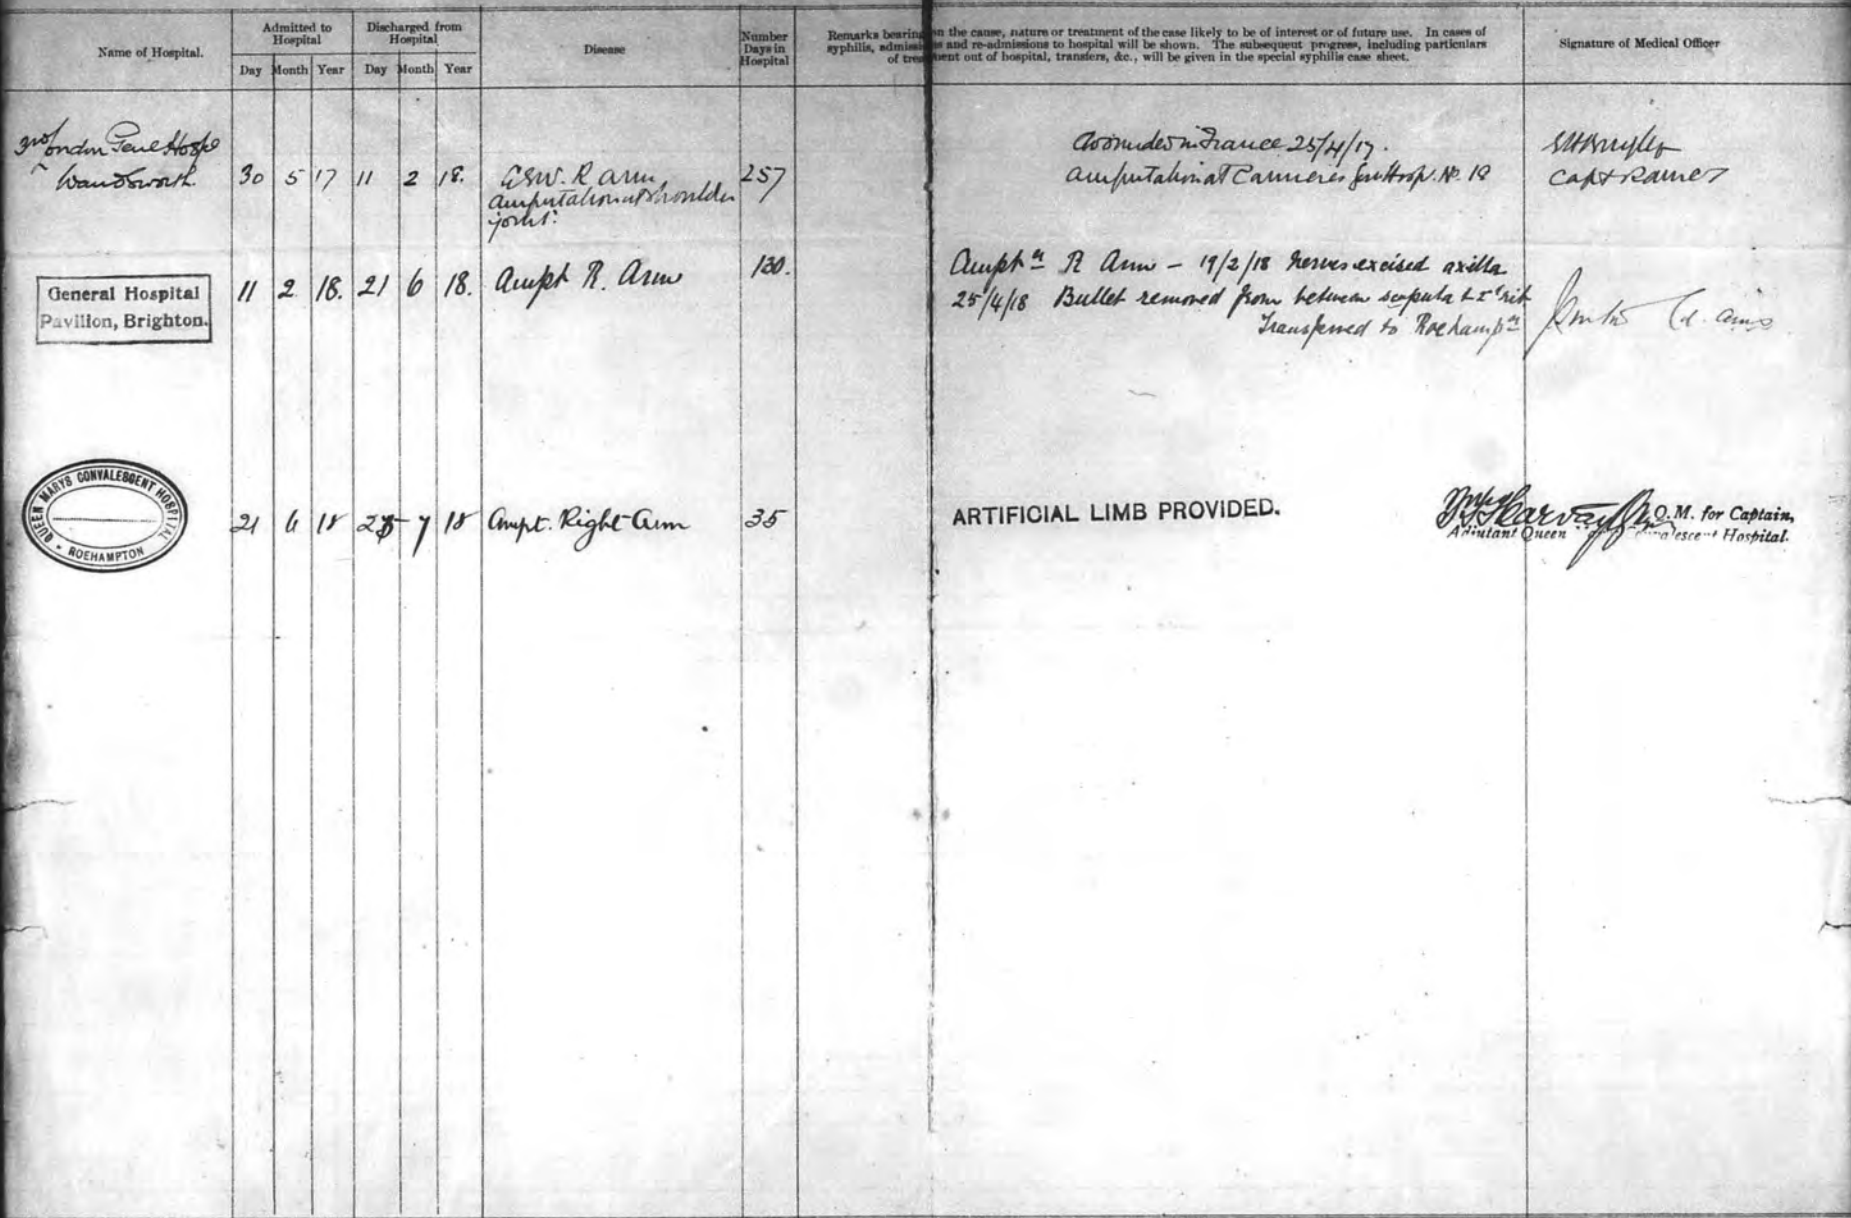 Name of Hospital.
Admitted to Hospital
Day Month Year
Discharged from Hospital
Day Month Year
Disease
Number Days in Hospital
Remarks bearing on the cause, nature or treatment of the case likely to be of interest or of future use. In cases of
syphilis, admissions and re-admissions to hospital will be shown. The subsequent progress, including particulars
of treatment out of hospital, transfers, &c., will be given in the special syphilis case sheet.
Signature of Medical Officer
3rd London Genl Hospl
Wandsworth.
30 5 17 11 2 18.
GSW. R arm
amputation at shoulder
joint.
257
Wounded in France 25/4/17.
amputation at Camieres Gen Hosp. No. 18
Capt RAMC
General Hospital
Pavilion, Brighton.
11 2 18. 21 6 18. Ampt R. Arm 130.
Amptn R Arm - 19/2/18 nerves excised axilla
25/4/18 Bullet removed from between scapula & 1st rib
Transferred to Roehamptn
QUEEN MARYS CONVALESCENT HOSPITAL
ROEHAMPTON
21 6 18 25 7 18 Ampt. Right Arm 35
ARTIFICIAL LIMB PROVIDED.
Q.M. for Captain,
Adjutant Queen Convalescent Hospital.